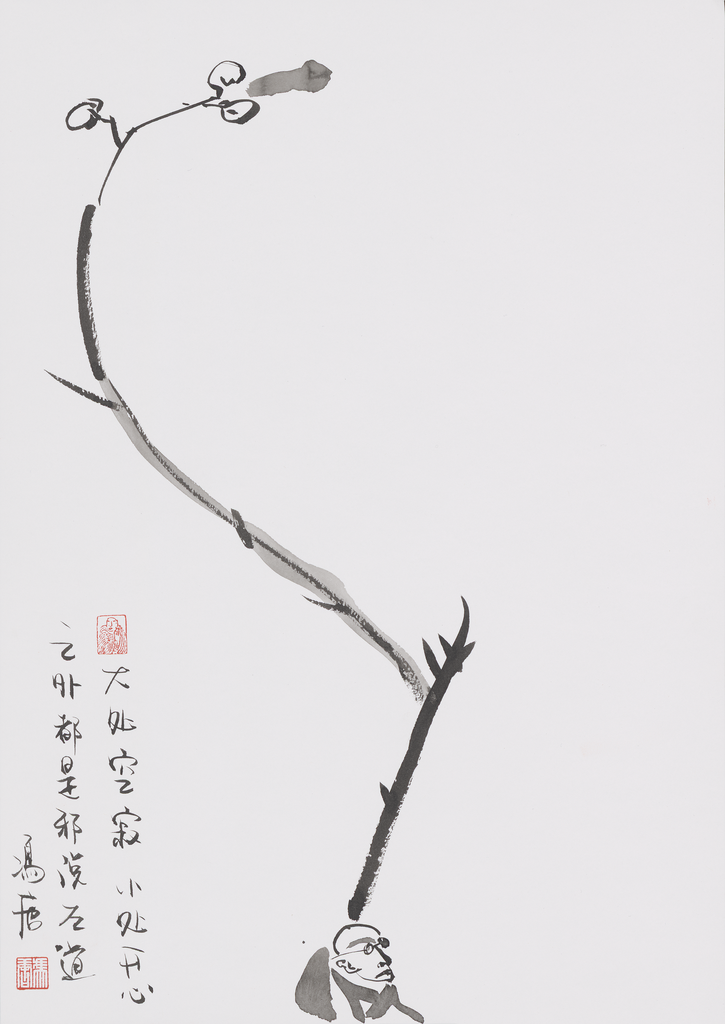 大处空寂 小处开心
之外都是邪说左道
冯唐